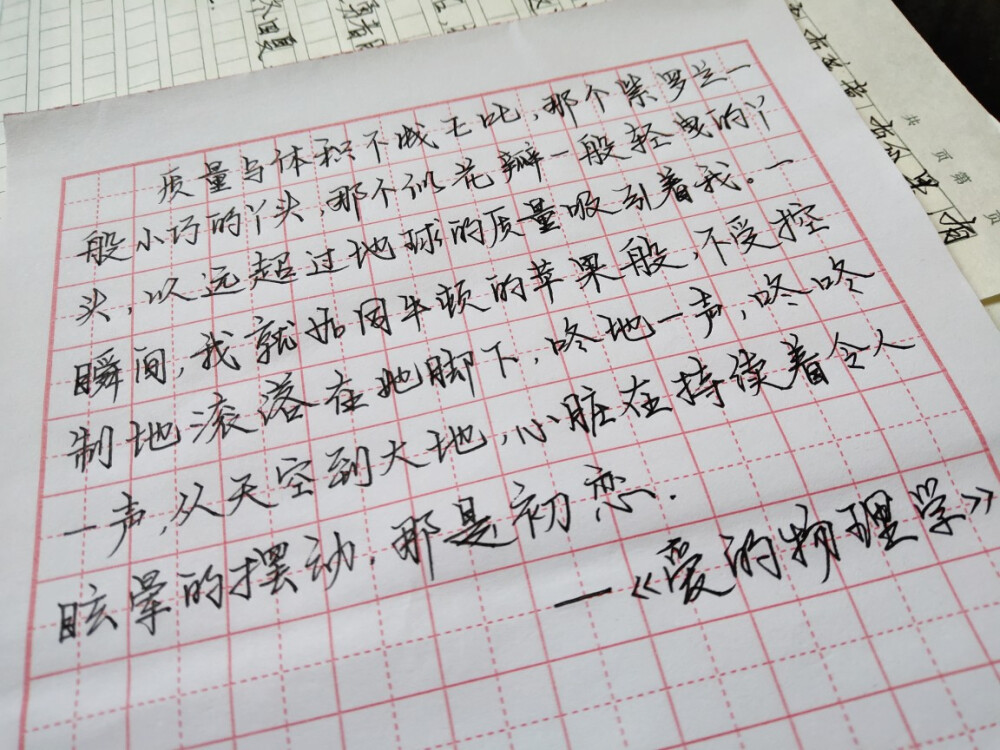 质量与体积不成正比,那个紫罗兰一
般小巧的丫头,那个似花瓣一般轻曳的丫
头,以远超过地球的质量吸引着我。一
瞬间,我就如同牛顿的苹果般,不受控
制地滚落在她脚下,咚地一声,咚咚
一声,从天空到大地,心脏在持续着令人
眩晕的摆动.那是初恋.
—《爱的物理学》
共 页 第 页